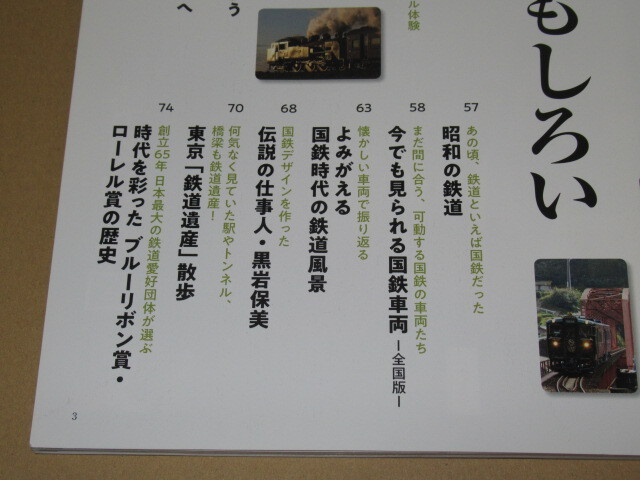 もしろい
ル体験
う
へ
57
あの頃、鉄道といえば国鉄だった
昭和の鉄道
58
まだ間に合う、可動する国鉄の車両たち
今でも見られる国鉄車両 ー全国版ー
63
懐かしい車両で振り返る
よみがえる
国鉄時代の鉄道風景
68
国鉄デザインを作った
伝説の仕事人・黒岩保美
70
何気なく見ていた駅やトンネル、
橋梁も鉄道遺産！
東京「鉄道遺産」散歩
74
創立65年 日本最大の鉄道愛好団体が選ぶ
時代を彩った ブルーリボン賞・
ローレル賞の歴史
3